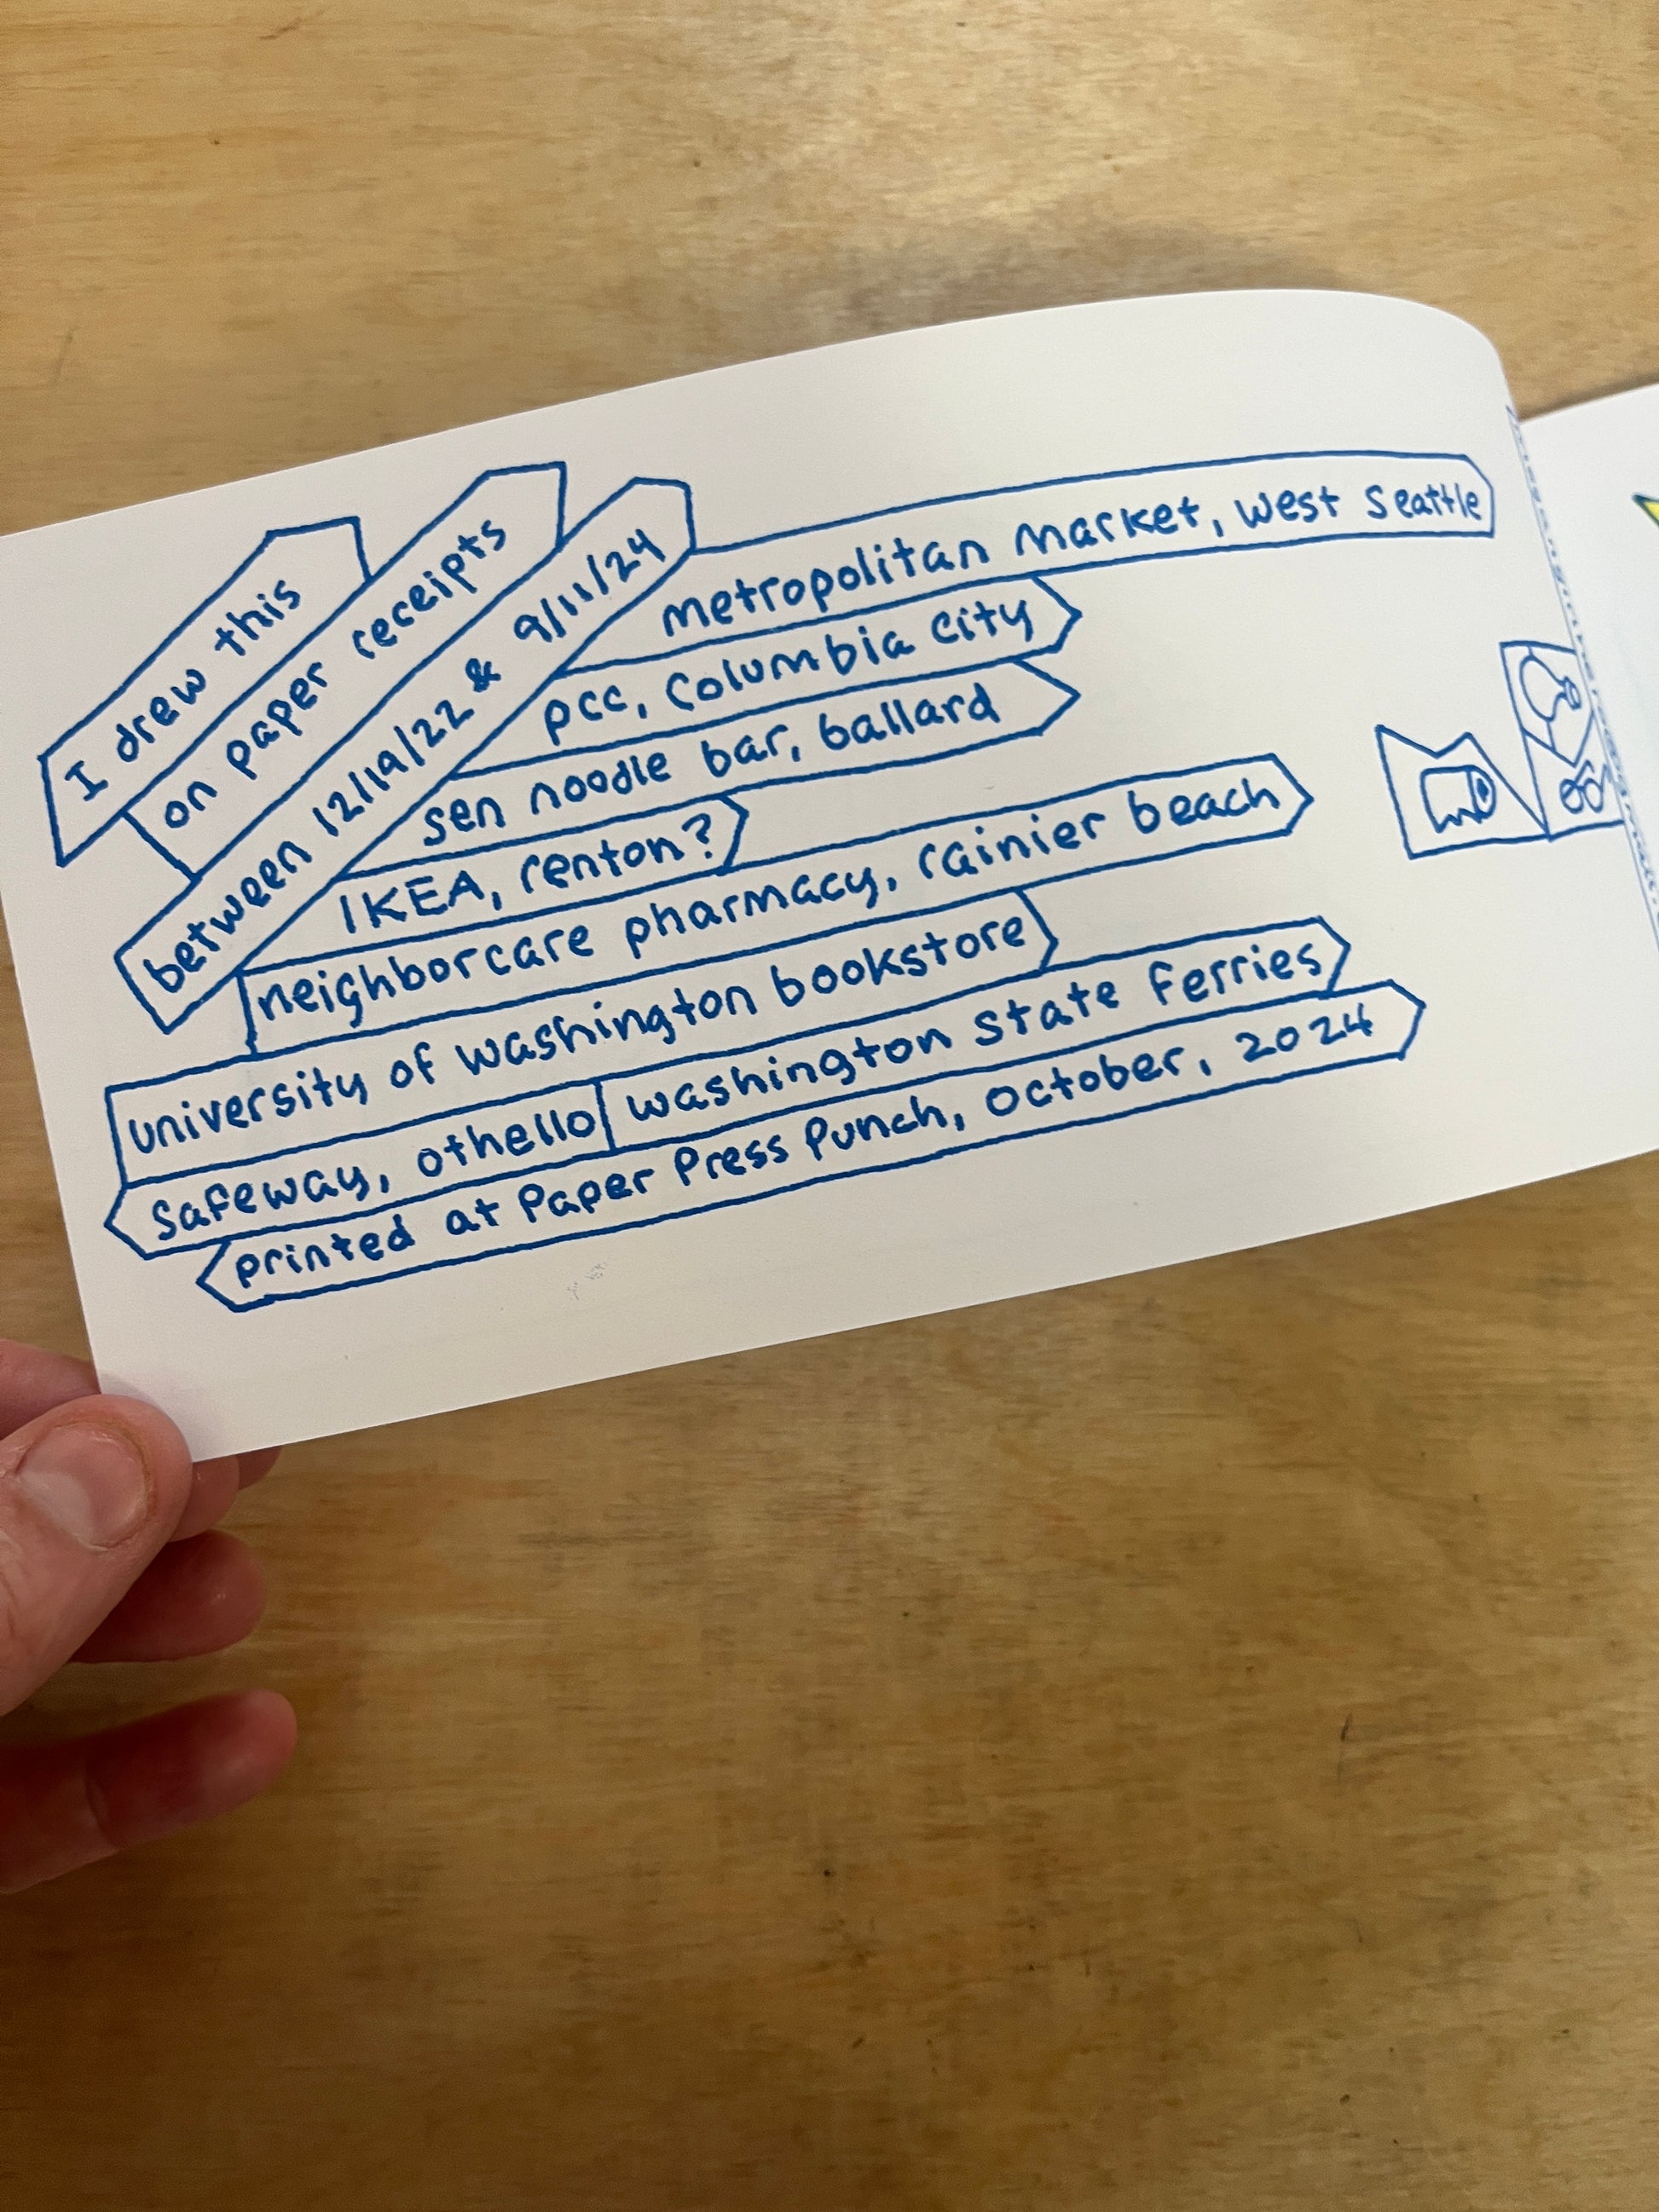 I drew this
on paper receipts
between 12/19/22 & 9/11/24
metropolitan market, west seattle
pcc, columbia city
sen noodle bar, ballard
IKEA, renton?
neighborcare pharmacy, rainier beach
university of washington bookstore
safeway, othello
washington state ferries
printed at Paper Press Punch, october, 2024